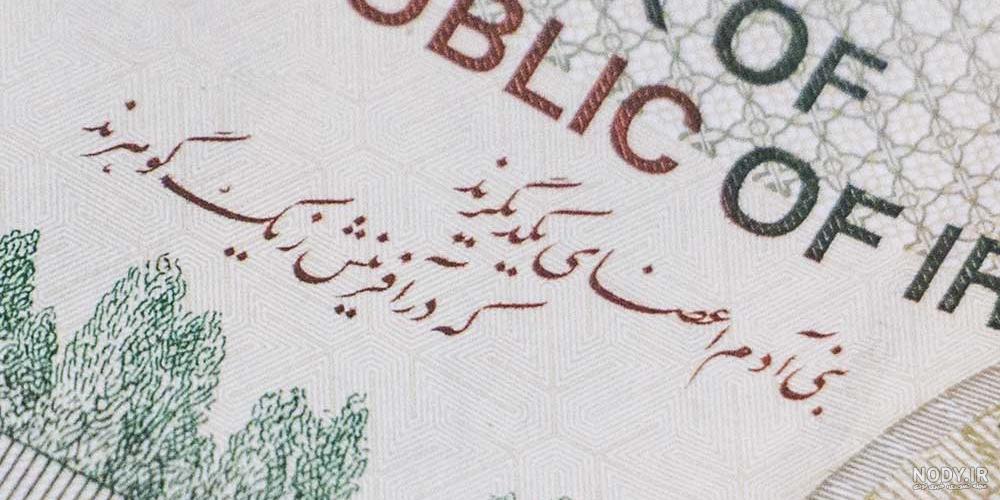 OF
UBLIC OF IR
بنی آدم اعضای یکدیگرند
که در آفرینش ز یک گوهرند
NODY.IR